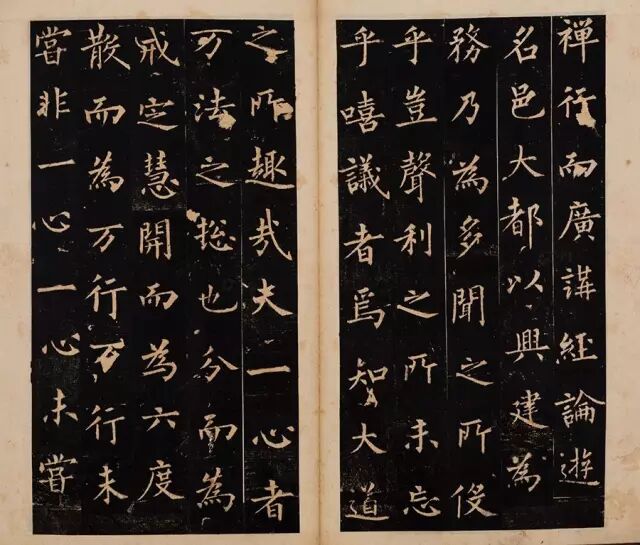 禪行而廣講経論遊
名邑大都以興建為
務乃為多聞之所伇
乎豈聲利之所未忘
乎嘻議者焉知大道
之所趣哉夫一心者
万法之捴也分而為
戒定慧開而為六度
散而為万行万行未
嘗非一心一心未嘗